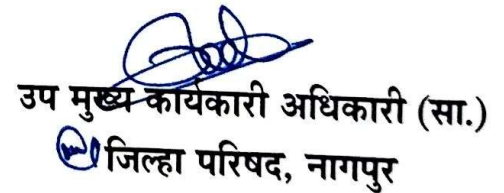 उप मुख्य कार्यकारी अधिकारी (सा.)
जिल्हा परिषद, नागपुर